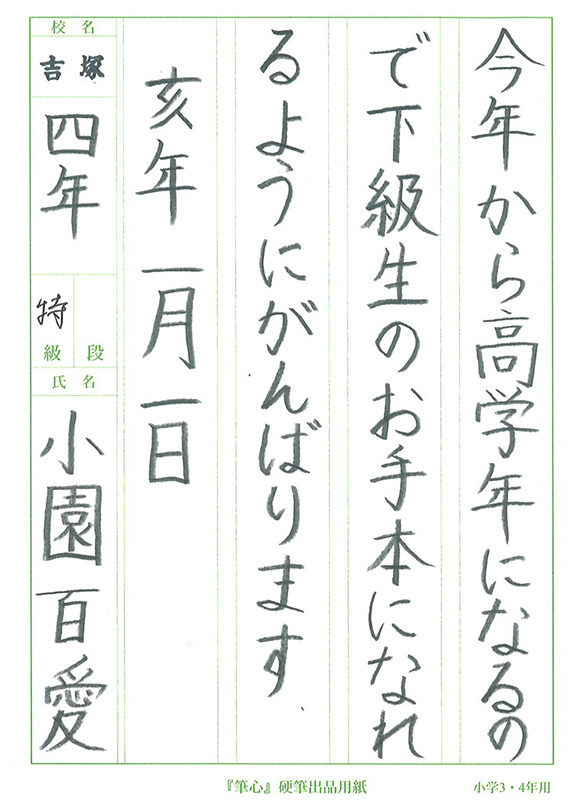 今年から高学年になるの
で下級生のお手本になれ
るようにがんばります
亥年一月一日
校名
吉塚
四年
特
級 段
氏名
小園百愛
『筆心』硬筆出品用紙
小学3・4年用